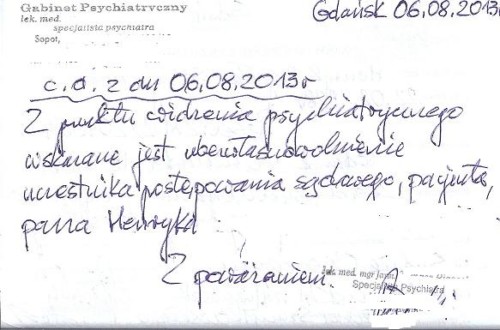 Gabinet Psychiatryczny
lek. med.
specjalista psychiatra
Sopot,
Gdańsk 06.08.2013r
c.d. z dn 06.08.2013r
Z punktu widzenia psychiatrycznego
wskazane jest ubezwłasnowolnienie
uczestnika postępowania sądowego, pacjenta,
pana Henryka
Z poważaniem.
lek. med. mgr
Specjalista Psychiatra